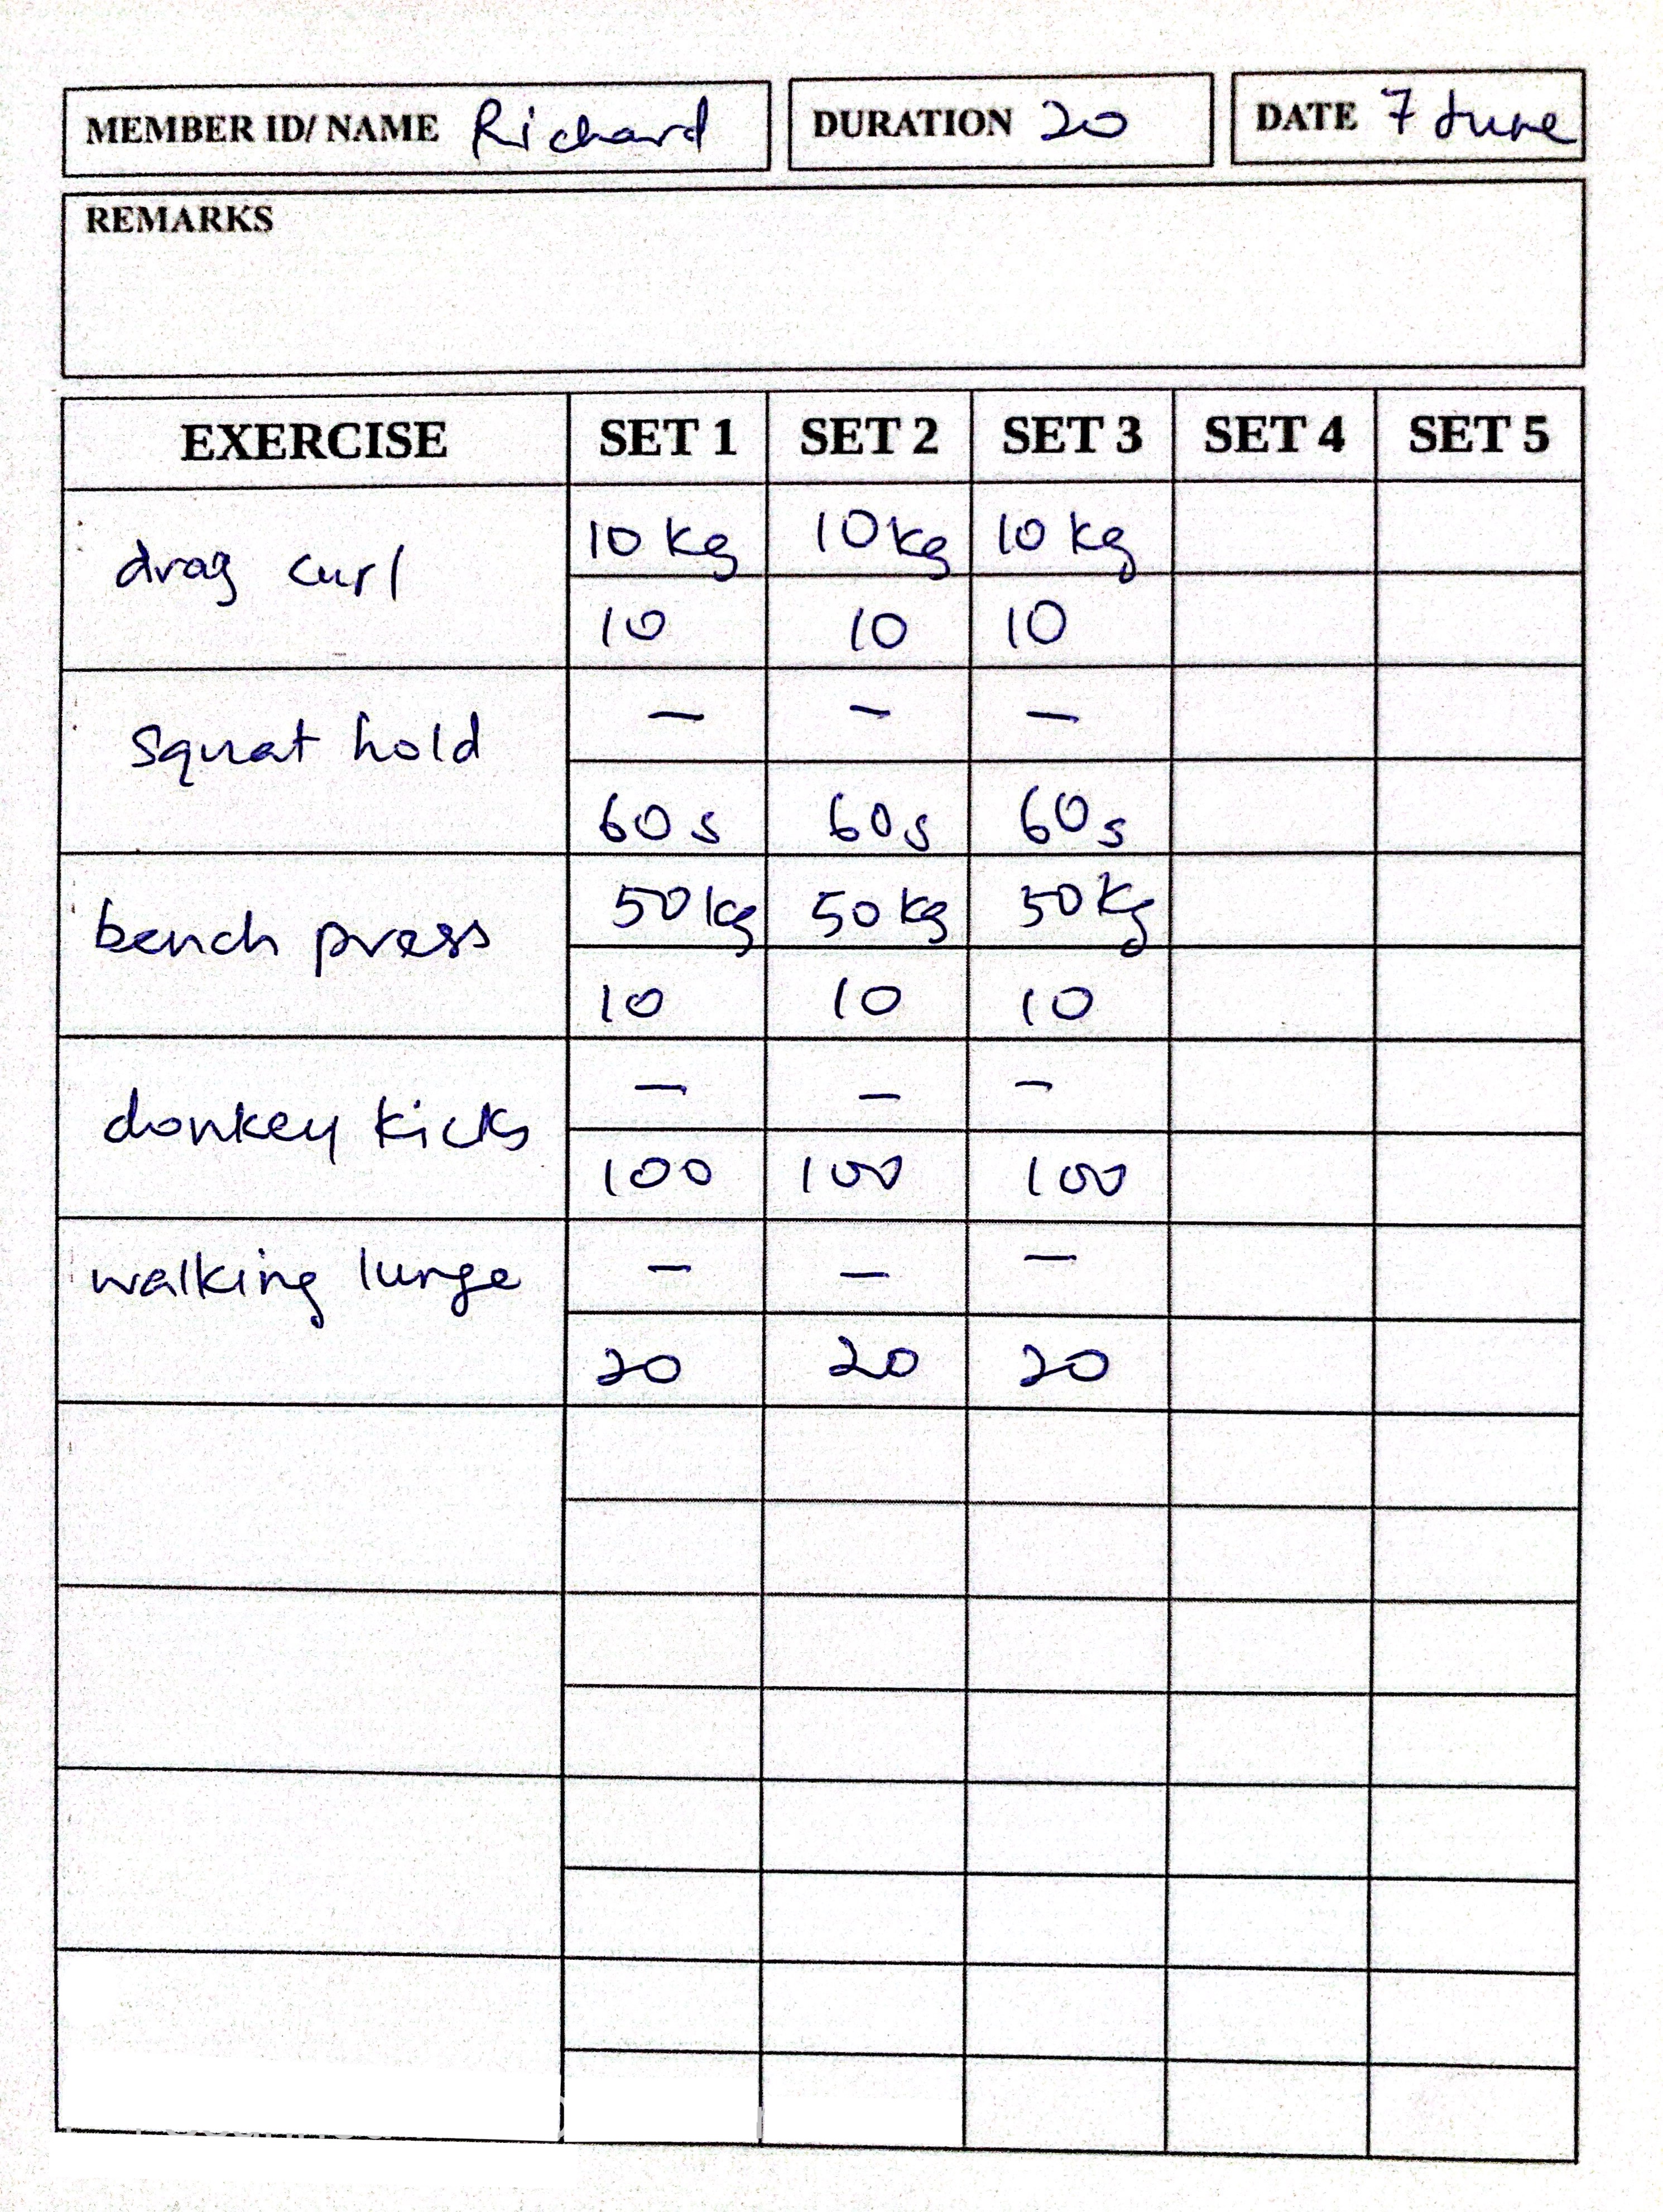 MEMBER ID/ NAME Richard DURATION 20 DATE 7 June
REMARKS
EXERCISE SET 1 SET 2 SET 3 SET 4 SET 5
drag curl
10 kg 10 kg 10 kg
10 10 10
squat hold
- - -
60 s 60 s 60 s
bench press
50 kg 50 kg 50 kg
10 10 10
donkey kicks
- - -
100 100 100
walking lunge
- - -
20 20 20